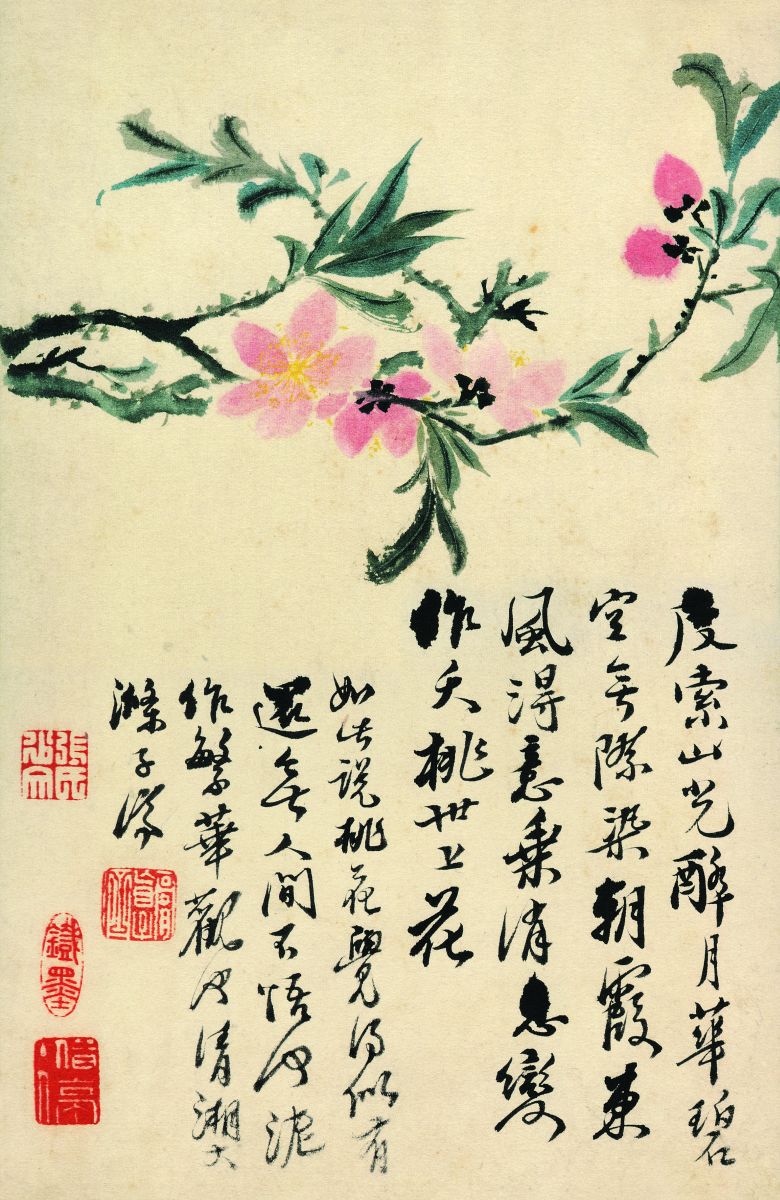 度索山光醉月華碧
空無際染朝霞東
風得意乘消息變
作夭桃世上花
如此說桃花覺得似有
還無人間不悟何泥
作繁華觀也清湘大
滌子濟
鐵墨